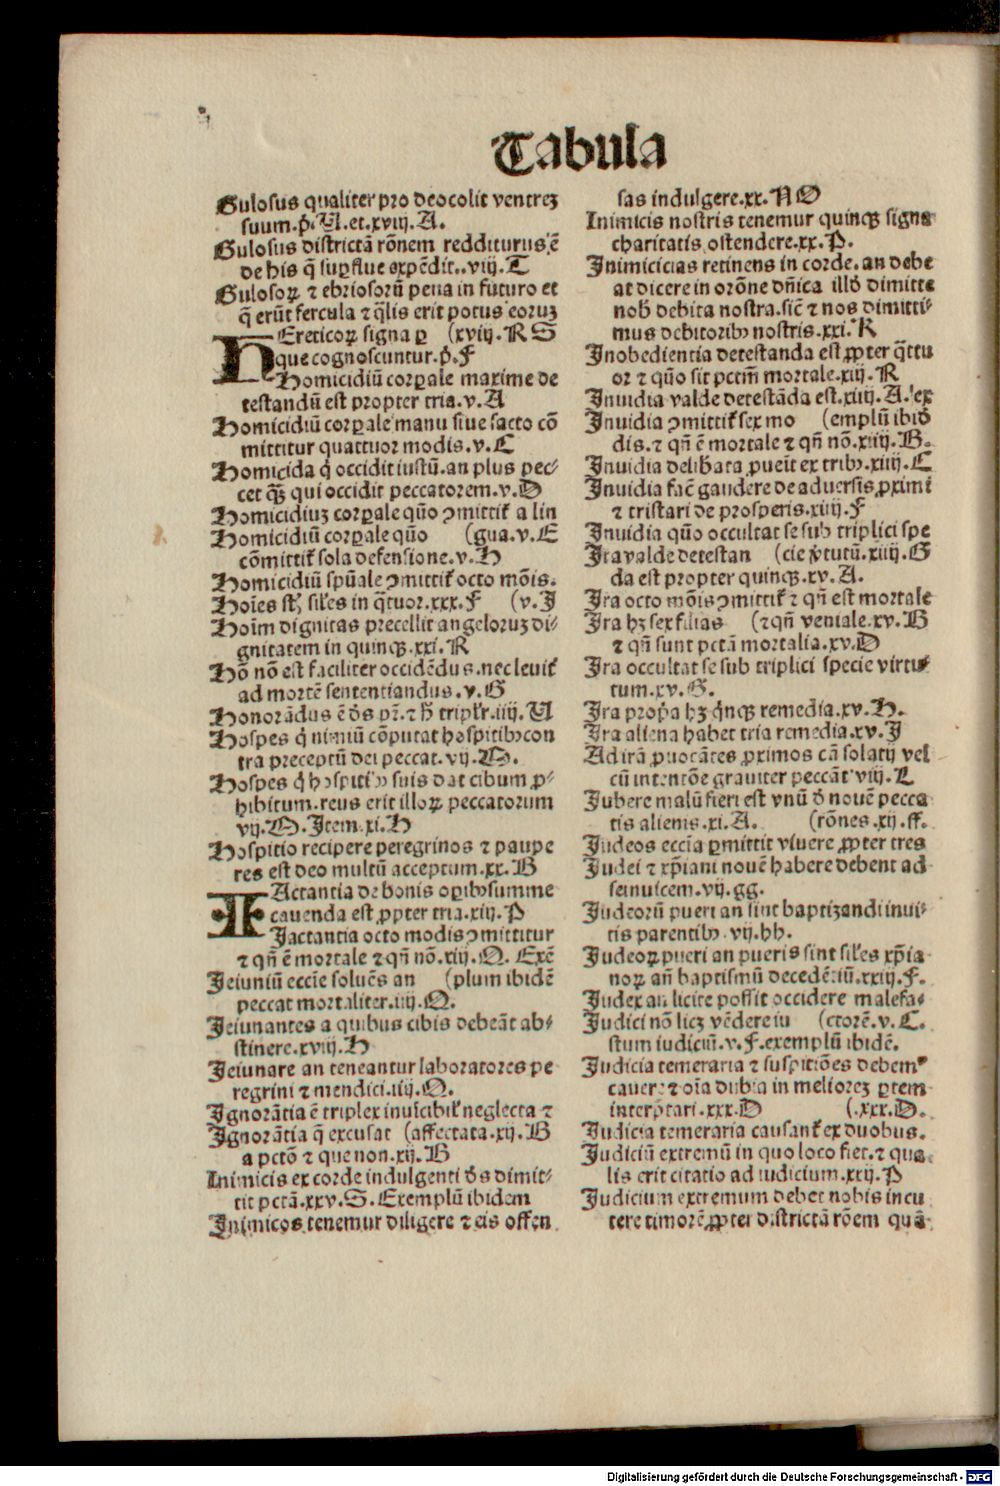 Tabula
Gulosus qualiter pro deo colit ventrez
suum.p̃.U.et.xviij.A.
Gulosus districtã rõnem redditurus ẽ
de his q̃ suꝑflue expẽdit..viij.T
Gulosoꝝ ⁊ ebriosorũ pena in futuro et
q̃ erũt fercula ⁊ q̃lis erit potus eoruz
Ereticoꝝ signa ꝑ (xviij.R S
H que cognoscuntur.p̃.F
Homicidiũ corꝑale maxime de
testandũ est propter tria.v.A
Homicidiũ corꝑale manu siue facto cõ
mittitur quattuor modis.v.C
Homicida q̇ occidit iustũ.an plus pec⸗
cet qꝫ̃ qui occidit peccatorem.v.D
Homicidiuz corꝑale quõ ꝯmittit̃ a lin
Homicidiũ corꝑale quõ (gua.v.E
cõmittit̃ sola defensione.v.H
Homicidiũ spũale ꝯmittit̃ octo mõis.
Hoĩes st̃ siles in q̃tuor.xxx.F (v.J
Hoĩm dignitas precellit angeloruz di⸗
gnitatem in quinqꝫ.xxi.R
Hõ nõ est faciliter occidẽdus.nec leuit̃
ad mortẽ sententiandus.v.G
Honorãdus ẽ d̃s pr̃.⁊ h̃ triplr̃.iiij.U
Hospes q̇ nimiũ cõputat hospitibꝫ con
tra preceptũ dei peccat.vij.O.
Hospes q̇ hospitibꝫ suis dat cibum ꝓ⸗
hibitum.reus erit illoꝝ peccatorum
vij.O.Item.xi.H
Hospitio recipere peregrinos ⁊ paupe
res est deo multũ acceptum.xx.B
Actantia de bonis oꝑibꝫ summe
I cauenda est ꝓpter tria.xiij.P
Jactantia octo modis ꝯmittitur
⁊ qñ ẽ mortale ⁊ qñ nõ.xiij.Q. Exẽ
Jeiuniũ eccĩe soluẽs an (plum ibidẽ
peccat mortaliter.iiij.Q.
Jeiunantes a quibus cibis debeãt ab⸗
stinere.xviij.H
Jeiunare an teneantur laboratores pe
regrini ⁊ mendici.iiij.Q.
Ignorãtia ẽ triplex inuĩcibil̃ neglecta ⁊
Ignorãtia q̃ excusat (affectata.xij.B
a pctõ ⁊ que non.xij.B
Inimicis ex corde indulgenti d̃s dimit⸗
tit pctã.xxv.S.Exemplũ ibidem
Inimicos tenemur diligere ⁊ eis offen
sas indulgere.xx.N O
Inimicis nostris tenemur quinqꝫ signa
charitatis ostendere.xx.P.
Inimicicias retinens in corde.an debe
at dicere in orõne dñica illd̃ dimitte
nob̃ debita nostra.sic̃ ⁊ nos dimitti⸗
mus debitoribꝫ nostris.xxi.R
Inobedientia detestanda est ꝓpter q̃ttu
or ⁊ quõ sit pctm̃ mortale.xiij.R
Inuidia valde detestãda est.xiiij.A.'ex
Inuidia ꝯmittit̃ sex mo (emplũ ibid̃
dis.⁊ qñ ẽ mortale ⁊ qñ nõ.xiiij.B.
Inuidia deliƀata ꝓueĩt ex tribꝫ.xiiij.E
Inuidia fac̃ gaudere de aduersis ꝓximi
⁊ tristari de prosperis.xiiij.F
Inuidia quõ occultat se sub triplici spe
Ira valde detestan (cie ṽtutũ.xiiij.G
da est propter quinqꝫ.xv.A.
Ira octo mõis ꝯmittit̃ ⁊ qñ est mortale
Ira hꝫ sex filias (⁊ qñ veniale.xv.B
⁊ qñ sunt pctã mortalia.xv.D
Ira occultat se sub triplici specie virtu⸗
tum.xv.G.
Ira prop̃a hꝫ q̇nqꝫ remedia.xv.H.
Ira aliena habet tria remedia.xv.J
Ad irã ꝓuocãtes ꝓximos cã solatij vel
cũ intentõe grauiter peccãt viij.L
Jubere malũ fieri est vnũ d̃ nouẽ pecca
tis alienis.xi.A. (rõnes.xij.ff.
Judeos eccĩa ꝑmittit viuere ꝓpter tres
Judei ⁊ xp̃iani nouẽ habere debent ad
seinuicem.vij.gg.
Judeorũ pueri an sint baptizandi inui⸗
tis parentibꝫ.vij.hh.
Judeoꝝ pueri an pueris sint siles xp̃ia
noꝝ añ baptismũ decedẽtiũ.xxiij.F.
Judex an licite possit occidere malefa⸗
Judici nõ licꝫ vẽdere iu (ctorẽ.v.C.
stum iudiciũ.v.F.exemplũ ibidẽ.
Judicia temeraria ⁊ suspitiões debemꝰ
cauere ⁊ oĩa dubia in meliorez ꝑtem
interp̃tari.xxx.D (.xxx.D.
Judicia temeraria causant̃ ex duobus.
Judiciũ extremũ in quo loco fiet.⁊ qua
lis erit citatio ad iudicium.xxij.P
Judicium extremum debet nobis incu
tere timorẽ ꝓpter districtã rõem quã
Digitalisierung gefördert durch die Deutsche Forschungsgemeinschaft - DFG